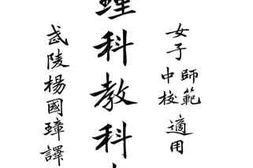 女子師範中校適用
理科教科
武陵楊國璋譯